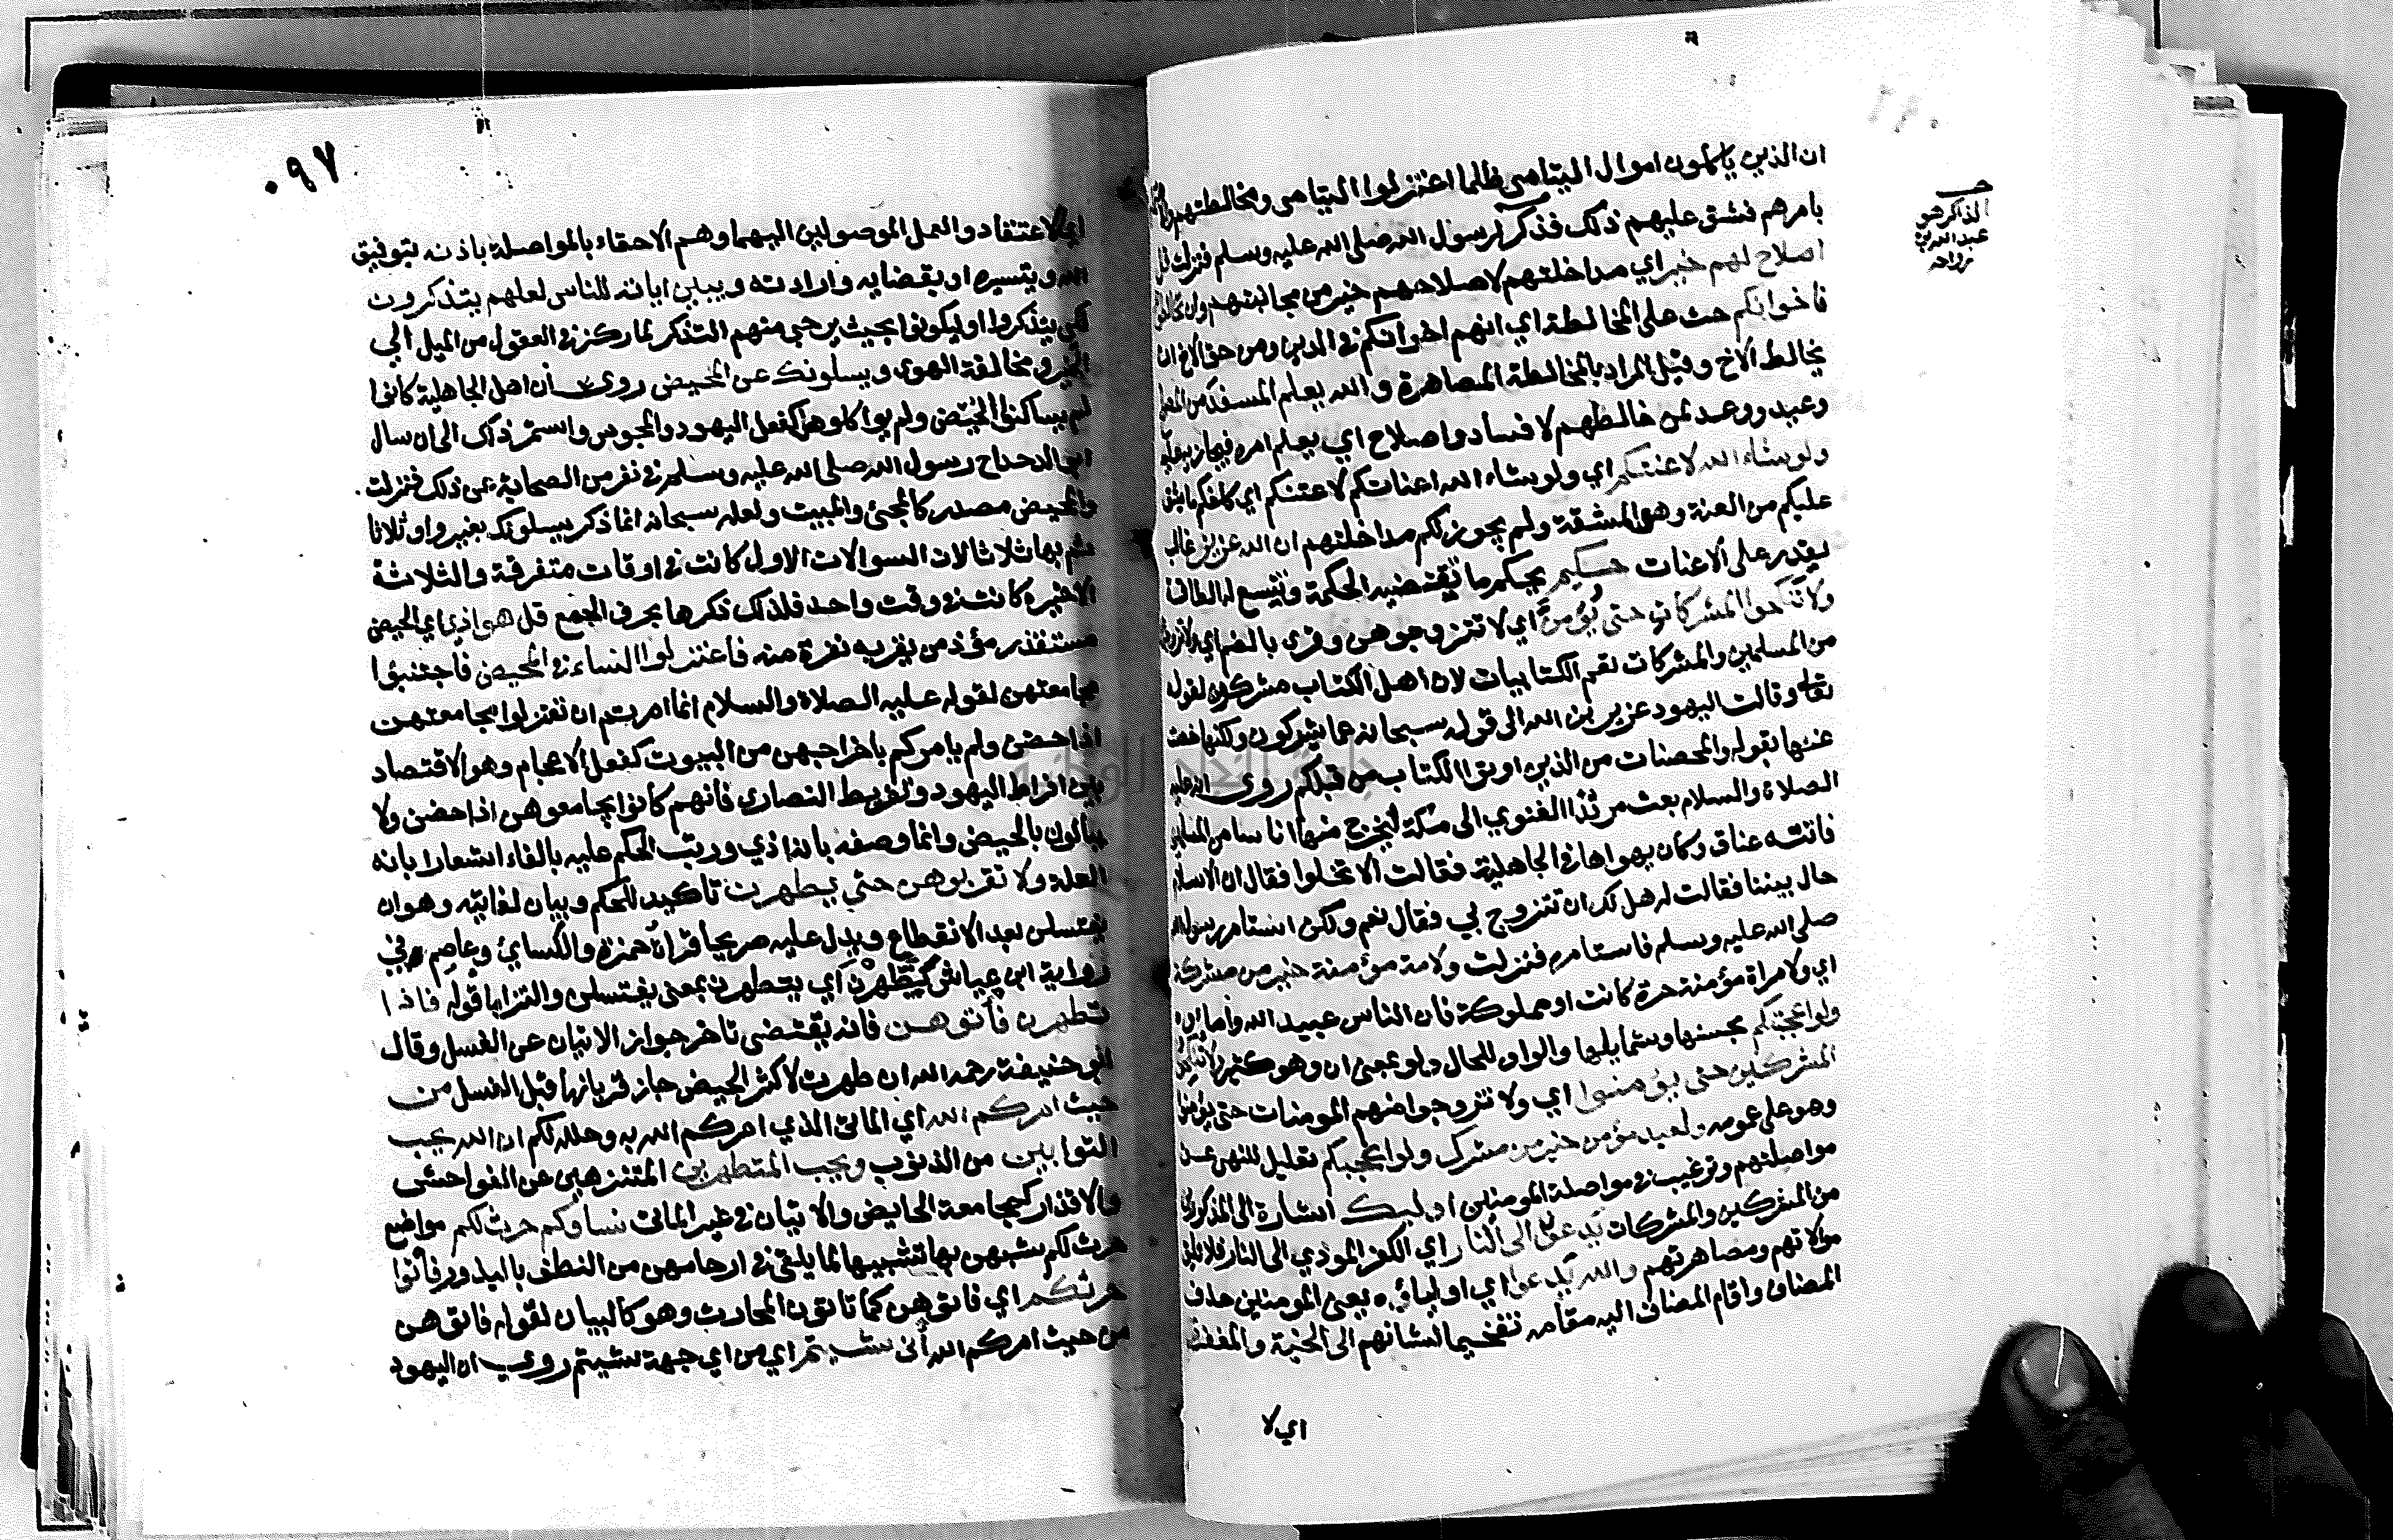 ان الذين ياكلون اموال اليتامى ظلما اعتزلوا اليتامى ومخالطتهم
بامرهم فشق عليهم ذلك فذكر لرسول الله صلى الله عليه وسلم فنزلت قل
اصلاح لهم خير اي مداخلتهم لاصلاحهم خير من مجانبتهم وان تخالطوهم
فاخوانكم حث على المخالطة اي انهم اخوانكم في الدين ومن حق الاخ ان
يخالط الاخ وقيل المراد بالمخالطة المصاهرة والله يعلم المفسد من المصلح
وعيد ووعد لمن خالطهم لافساد واصلاح اي يعلم امره فيجازيه عليه
ولو شاء الله لاعنتكم اي ولو شاء الله اعناتكم لاعنتكم اي كلفكم ما يشق
عليكم من العنة وهي المشقة ولم يجوز لكم مداخلتهم ان الله عزيز غالب
يقدر على الاعنات حكيم يحكم ما تقتضيه الحكمة وتتسع له الطاقة
ولا تنكحوا المشركات حتى يؤمن اي لا تتزوجوهن وقرئ بالضم اي ولا تزوجوهن
من المسلمين والمشركات تعم الكتابيات لان اهل الكتاب مشركون لقوله
تعالى وقالت اليهود عزير ابن الله الى قوله سبحانه عما يشركون ولكنها خصت
عنها بقوله والمحصنات من الذين اوتوا الكتاب من قبلكم روى انه عليه
الصلاة والسلام بعث مرثدا الغنوي الى مكة ليخرج منها اناسا من المسلمين
فاتته عناق وكان يهواها في الجاهلية فقالت الا تخلوا فقال ان الاسلام
حال بيننا فقالت له هل لك ان تتزوج بي فقال نعم ولكن استامر رسول الله
صلى الله عليه وسلم فاستامره فنزلت ولامة مؤمنة خير من مشركة
اي ولامراة مؤمنة حرة كانت او مملوكة فان الناس عبيد الله واماؤه
ولو اعجبتكم بحسنها وشمايلها والواو للحال ولو بمعنى ان وهو كثير ولا تنكحوا
المشركين حتى يؤمنوا اي ولا تزوجوا منهم المومنات حتى يؤمنوا
وهو على عمومه ولعبد مؤمن خير من مشرك ولو اعجبكم تعليل للنهي عن
مواصلتهم وترغيب في مواصلة المومنين اوليك اشارة الى المذكورين
من المشركين والمشركات يدعون الى النار اي الكفر المودي الى النار فلا يليق
موالاتهم ومصاهرتهم والله يدعوا اي اولياؤه يعني المومنين حذف
المضاف واقام المضاف اليه مقامه تفخيما لشانهم الى الجنة والمغفرة
اي لا
الذاكر هو
عبد الله بن
رواحه
٠٩٧
اي الاعتقاد والعمل الموصولين اليهما وهم الاحقاء بالمواصلة باذنه بتوفيق
الله وبتيسيره او بقضايه وارادته ويبين اياته للناس لعلهم يتذكرون
لكي يتذكروا او ليكونوا بحيث يرجى منهم التذكر لما ركز في العقول من الميل الى
الخير ومخالفة الهوى ويسلونك عن المحيض روى ان اهل الجاهلية كانوا
لم يساكنوا الحيض ولم يواكلوهن كفعل اليهود والمجوس واستمر ذلك الى ان سال
ابو الدحداح رسول الله صلى الله عليه وسلم في نفر من الصحابة عن ذلك فنزلت
والمحيض مصدر كالمجئ والمبيت ولعله سبحانه انما ذكر يسلونك بغير واو ثلاثا
ثم بها ثلاثا لان السوالات الاول كانت في اوقات متفرقة والثلاثة
الاخيرة كانت في وقت واحد فلذلك ذكرها بحرف الجمع قل هو اذى اي الحيض
مستقذر مؤذ من يقربه نفرة منه فاعتزلوا النساء في المحيض فاجتنبوا
مجامعتهن لقوله عليه الصلاة والسلام انما امرتم ان تعتزلوا مجامعتهن
اذا حضن ولم يامركم باخراجهن من البيوت كفعل الاعجام وهو الاقتصاد
بين افراط اليهود وتفريط النصارى فانهم كانوا يجامعوهن اذا حضن ولا
يبالون بالحيض وانما وصفه بانه اذي ورتب الحكم عليه بالفاء اشعارا بانه
العلة ولا تقربوهن حتى يطهرن تاكيد للحكم وبيان لغايته وهو ان
يغتسلن بعد الانقطاع ويدل عليه صريحا قراة حمزة والكسائي وعاصم في
رواية ابن عياش يطهرن اي يتطهرن بمعنى يغتسلن والتزاما قوله فاذا
تطهرن فأتوهن فانه يقتضى تاخر جواز الاتيان عن الغسل وقال
ابو حنيفة رحمه الله ان طهرت لاكثر الحيض جاز قربانها قبل الغسل من
حيث امركم الله اي الماتى الذي امركم الله به وحلله لكم ان الله يحب
التوابين من الذنوب ويحب المتطهرين المتنزهين عن الفواحش
والاقذار كمجامعة الحايض والاتيان في غير الماتى نساوكم حرث لكم مواضع
حرث لكم شبهن بها تشبيها لما يلقى في ارحامهن من النطف بالبذور فأتوا
حرثكم اي فاتوهن كما تاتون المحارث وهو كالبيان لقوله فاتوهن
من حيث امركم الله أنى شيتم اي من اي جهة شيتم روي ان اليهود